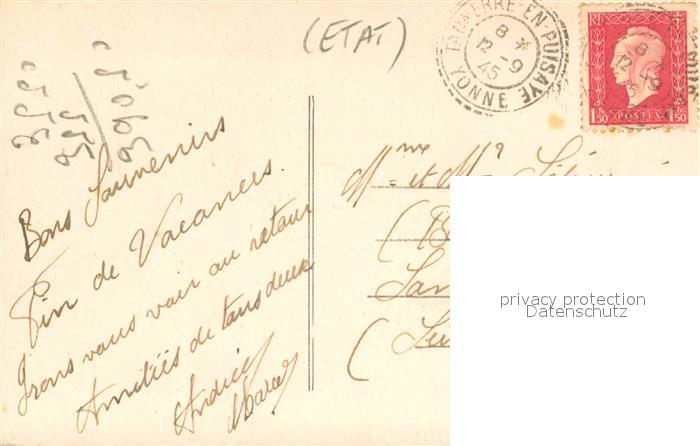 (ETAT)
3550
355
3905
TANNERRE-EN-PUISAYE
8 *
12 -9
45
YONNE
RF
1F50 POSTES 1F50
Bons Souvenirs
Fin de Vacances.
Irons vous voir au retour
Amitiés de tous deux
Andrée
Marcel
Mme et Mr
privacy protection
Datenschutz